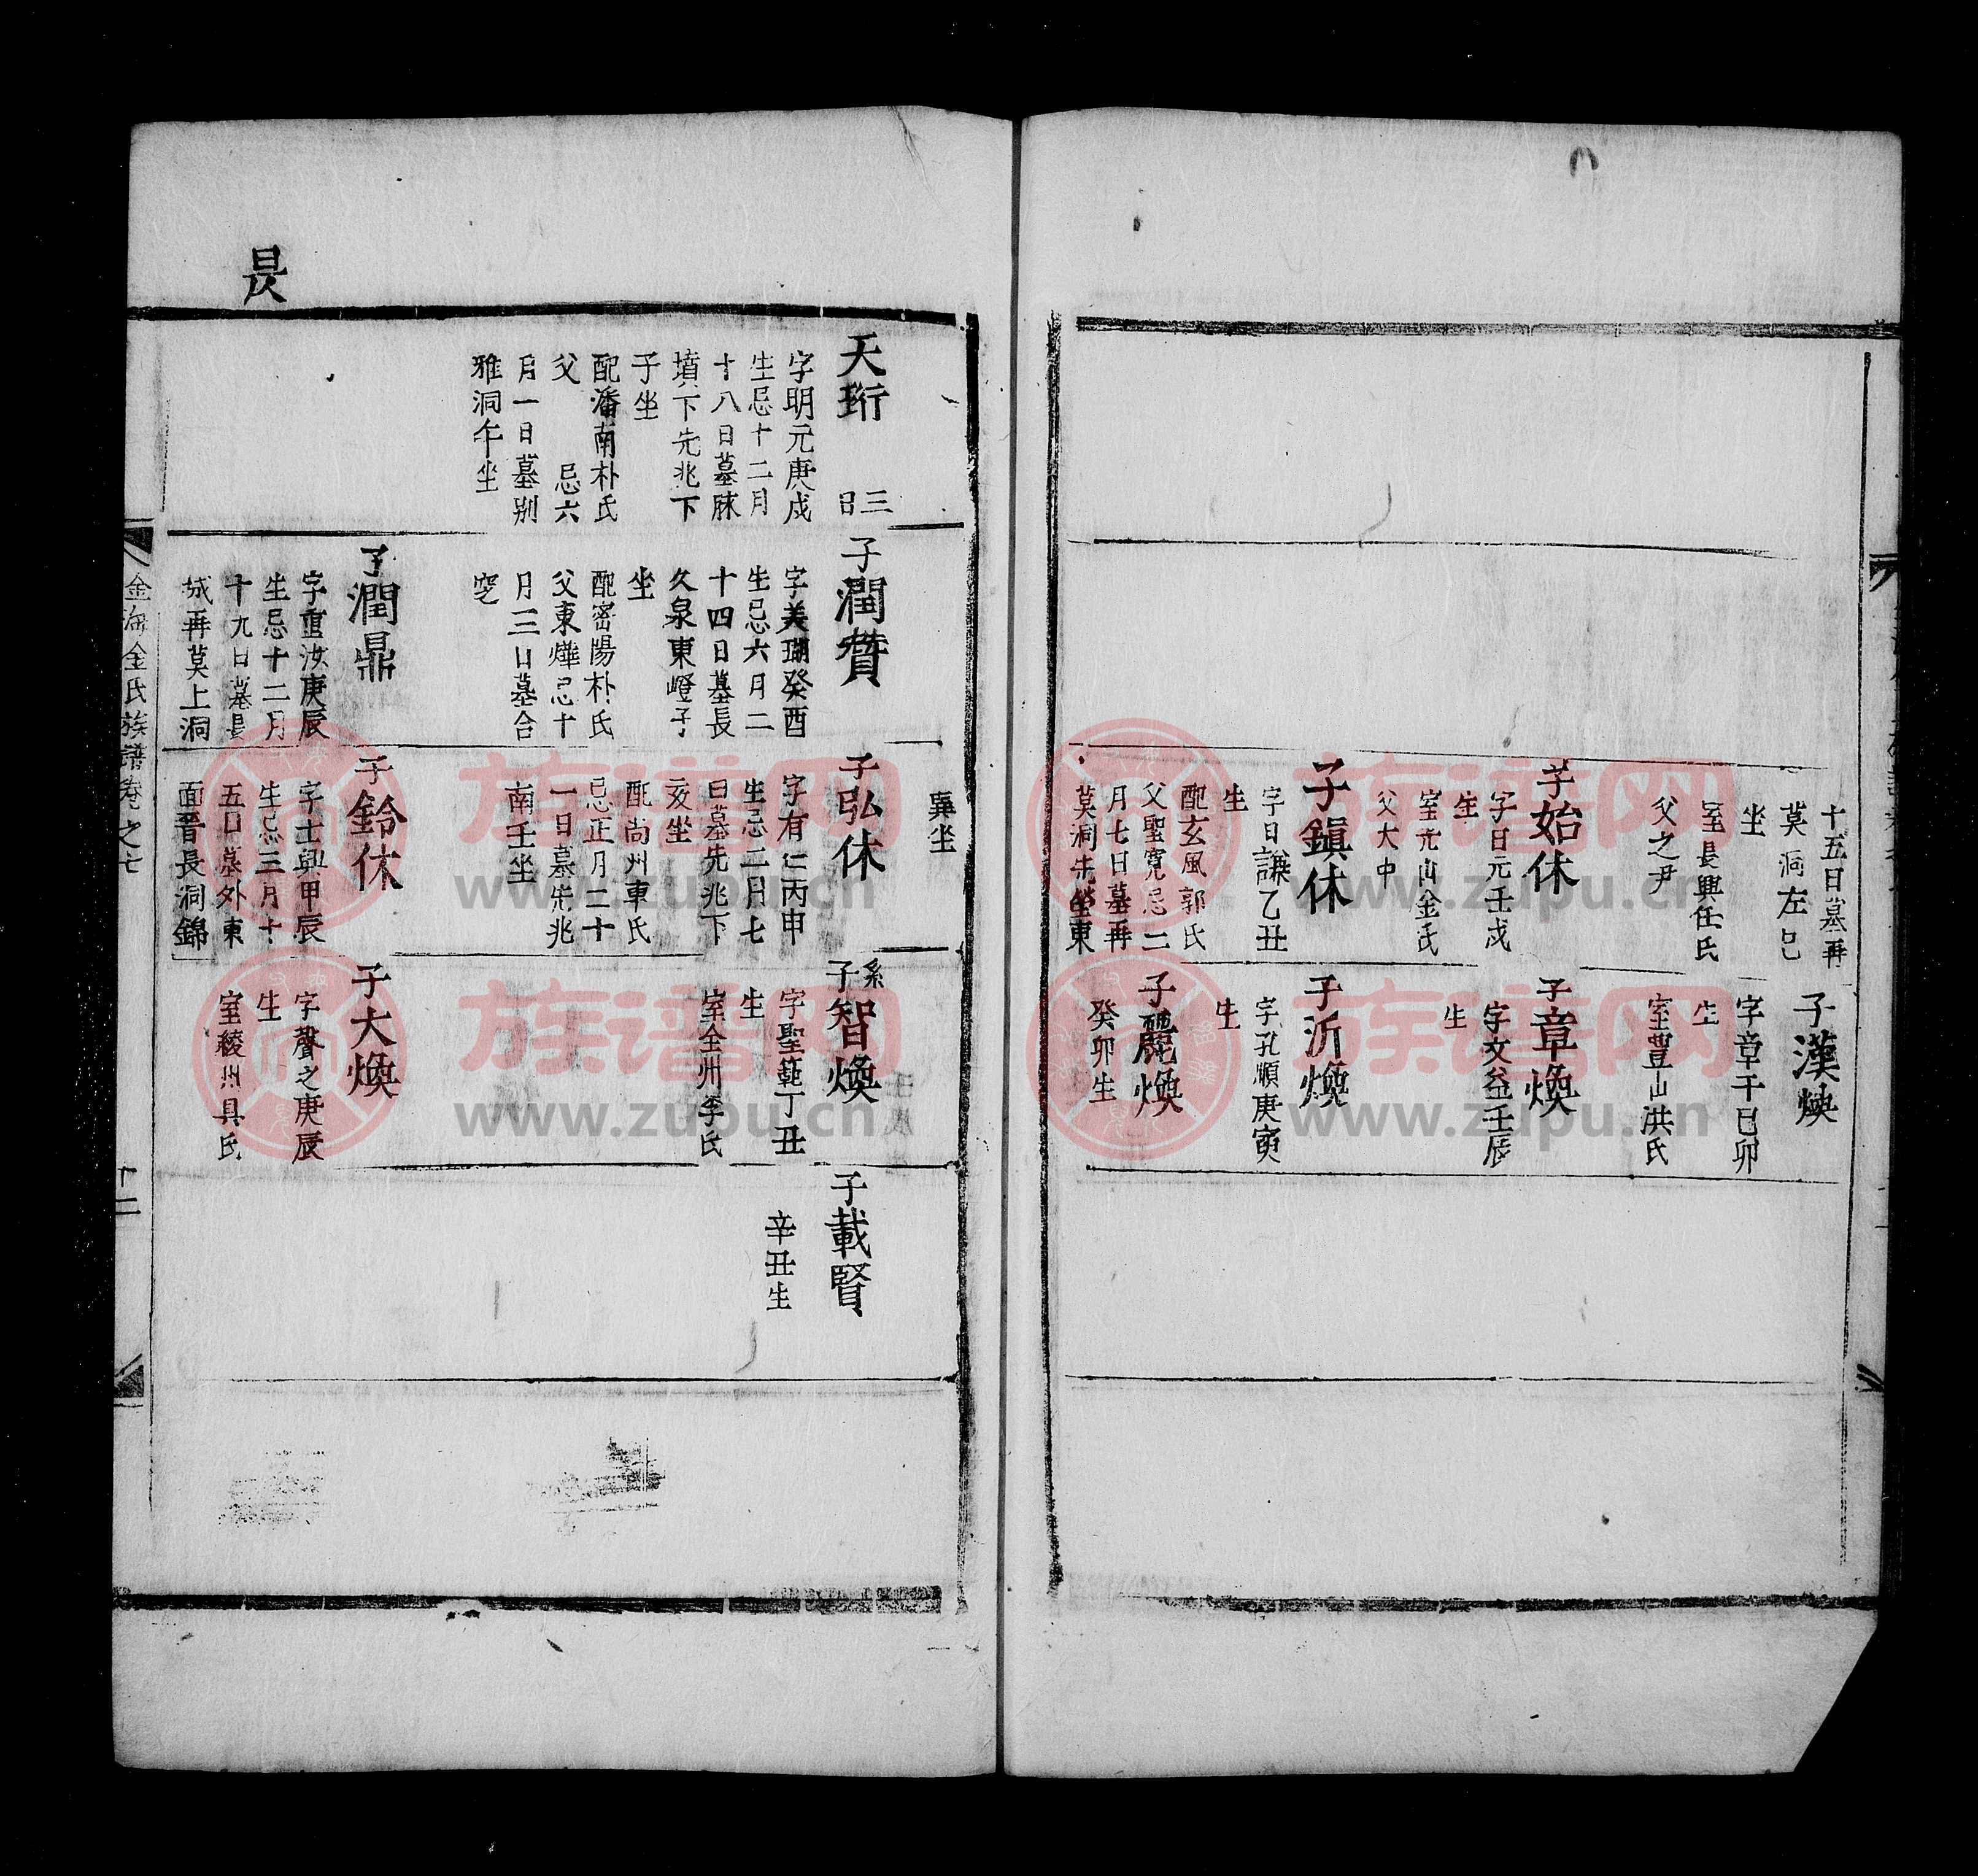 十五日墓再
莫洞左巳
坐
室長興任氏
父之尹
子始休
字日元壬戌
生
室光山金氏
父大中
子鎭休
字日謙乙丑
生
配玄風郭氏
父聖寬忌二
月七日墓再
莫洞先塋東
子漢煥
字章千己卯
生
室豊山洪氏
子章煥
字文益壬辰
生
子沂煥
字孔順庚寅
生
子麗煥
癸卯生
昃
天珩
三
日
字明元庚戌
生忌十二月
十八日墓
墳下先兆下
子坐
配潘南朴氏
父 忌六
月一日墓別
雅洞午坐
子潤贊
字美瑚癸酉
生忌六月二
十四日墓長
久泉東嶝子
坐
配密陽朴氏
父東燁忌十
月三日墓合
窆
子潤鼎
字重汝庚辰
生忌十二月
十九日墓長
城再莫上洞
巽坐
子弘休
字有仁丙申
生忌二月七
日墓先兆下
亥坐
配尙州車氏
忌正月二十
一日墓先兆
南壬坐
子鈴休
字士興甲辰
生忌三月十
五日墓外東
面晋長洞錦
系
子智煥
字聖範丁丑
生
室全州李氏
子大煥
字聲之庚辰
生
室綾州具氏
子載賢
辛丑生
金海金氏族譜卷之七
十二
族谱网
www.zupu.cn
族谱网
www.zupu.cn
族谱网
www.zupu.cn
族谱网
www.zupu.cn